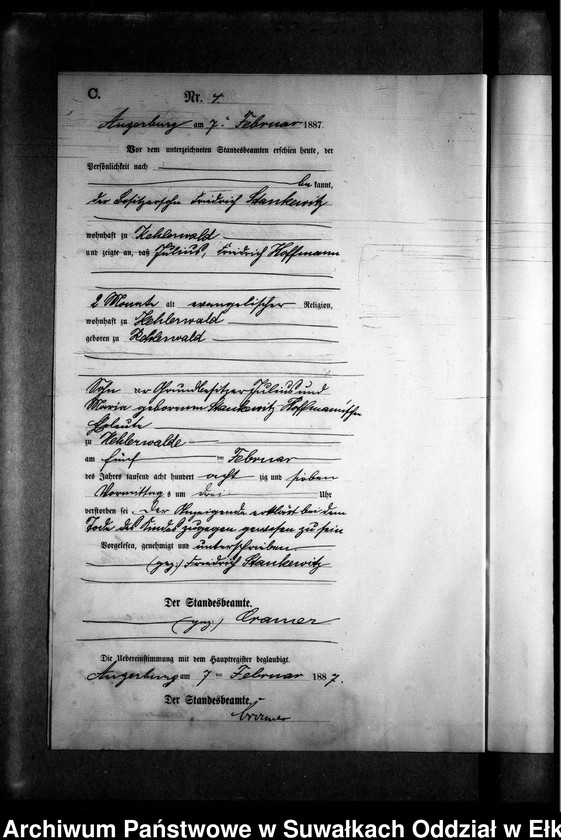 C.
Nr. 4.
Angerburg am 7ten Februar 1887.
Vor dem unterzeichneten Standesbeamten erschien heute, der
Persönlichkeit nach
bekannt,
der Besitzersohn Friedrich Stankewitz
wohnhaft zu Kehlerwald
und zeigte an, daß Julius, Friedrich Hoffmann
2 Monate alt evangelischer Religion,
wohnhaft zu Kehlerwald
geboren zu Kehlerwald
Sohn der Grundbesitzer Julius und
Maria geborenen Stankewitz Hoffmann'schen
Eheleute
zu Kehlerwalde
am fünf ten Februar
des Jahres tausend acht hundert acht zig und sieben
Vormittags um drei Uhr
verstorben sei. Der Anzeigende erklärt bei dem
Tode des Kindes zugegen gewesen zu sein
Vorgelesen, genehmigt und unterschrieben
(gez:) Friedrich Stankewitz
Der Standesbeamte.
(gez:) Cramer
Die Uebereinstimmung mit dem Hauptregister beglaubigt.
Angerburg am 7 ten Februar 1887.
Der Standesbeamte.
Cramer
Archiwum Państwowe w Suwałkach Oddział w Ełk